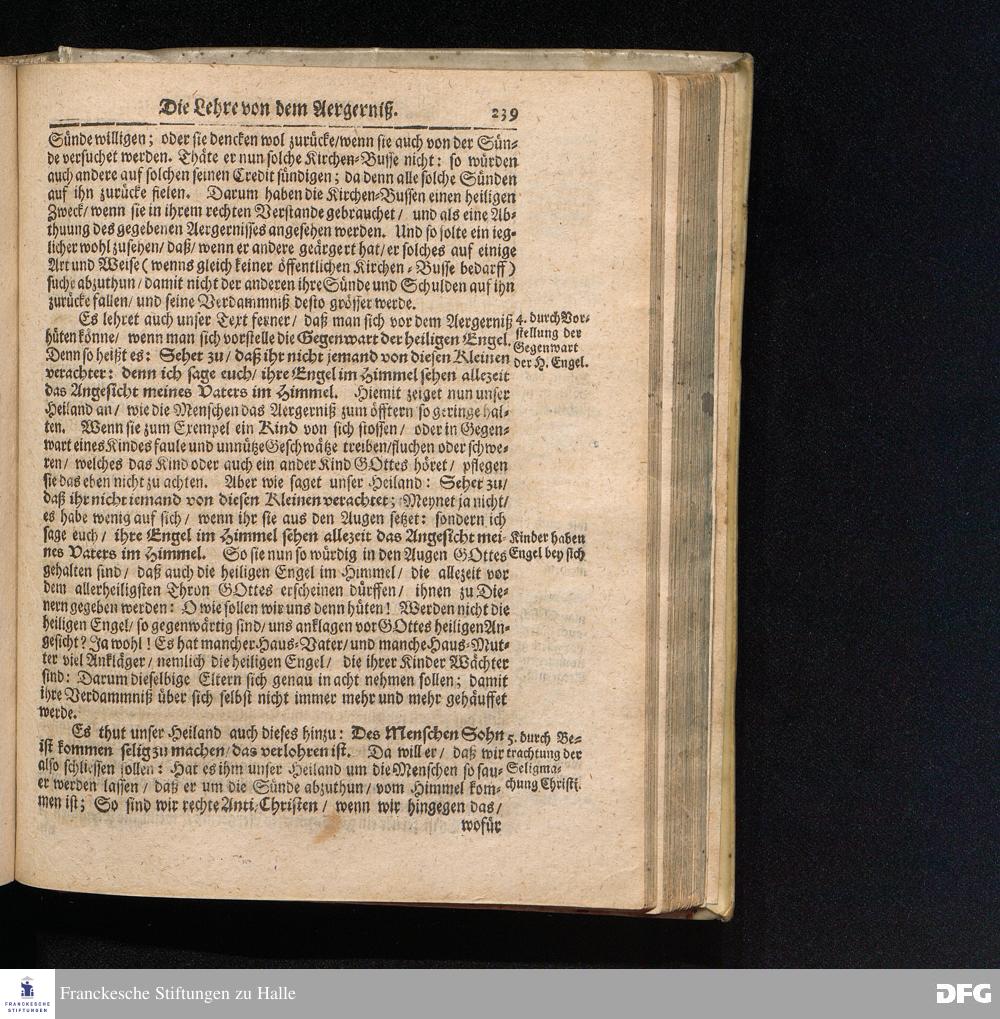 Die Lehre von dem Aergerniß.
239
Sünde willigen; oder sie dencken wol zurücke/wenn sie auch von der Sün-
de versuchet werden. Thäte er nun solche Kirchen-Busse nicht: so würden
auch andere auf solchen seinen Credit sündigen; da denn alle solche Sünden
auf ihn zurücke fielen. Darum haben die Kirchen-Bussen einen heiligen
Zweck/wenn sie in ihrem rechten Verstande gebrauchet/ und als eine Ab-
thuung des gegebenen Aergernisses angesehen werden. Und so solte ein ieg-
licher wohl zusehen/ daß/ wenn er andere geärgert hat/er solches auf einige
Art und Weise (wenns gleich keiner öffentlichen Kirchen-Busse bedarff)
suche abzuthun/damit nicht der anderen ihre Sünde und Schulden auf ihn
zurücke fallen/ und seine Verdammniß desto grösser werde.
Es lehret auch unser Text ferner/ daß man sich vor dem Aergerniß
hüten könne/ wenn man sich vorstelle die Gegenwart der heiligen Engel.
Denn so heißt es: Sehet zu/ daß ihr nicht jemand von diesen Kleinen
verachtet: denn ich sage euch/ ihre Engel im Himmel sehen allezeit
das Angesicht meines Vaters im Himmel. Hiemit zeiget nun unser
Heiland an/ wie die Menschen das Aergerniß zum öfftern so geringe hal-
ten. Wenn sie zum Exempel ein Kind von sich stossen/ oder in Gegen-
wart eines Kindes faule und unnütze Geschwätze treiben/fluchen oder schwe-
ren/ welches das Kind oder auch ein ander Kind GOttes höret/ pflegen
sie das eben nicht zu achten. Aber wie saget unser Heiland: Sehet zu/
daß ihr nicht iemand von diesen Kleinen verachtet; Meynet ja nicht/
es habe wenig auf sich/ wenn ihr sie aus den Augen setzet: sondern ich
sage euch/ ihre Engel im Himmel sehen allezeit das Angesicht mei-
nes Vaters im Himmel. So sie nun so würdig in den Augen GOttes
gehalten sind/ daß auch die heiligen Engel im Himmel/ die allezeit vor
dem allerheiligsten Thron GOttes erscheinen dürffen/ ihnen zu Die-
nern gegeben werden: O wie sollen wir uns denn hüten! Werden nicht die
heiligen Engel/ so gegenwärtig sind/ uns anklagen vor GOttes heiligen An-
gesicht? Ja wohl! Es hat mancher Haus-Vater/ und manche Haus-Mut-
ter viel Ankläger/ nemlich die heiligen Engel/ die ihrer Kinder Wächter
sind: Darum dieselbige Eltern sich genau in acht nehmen sollen; damit
ihre Verdammniß über sich selbst nicht immer mehr und mehr gehäuffet
werde.
Es thut unser Heiland auch dieses hinzu: Des Menschen Sohn
ist kommen selig zu machen/das verlohren ist. Da will er/ daß wir
also schliessen sollen: Hat es ihm unser Heiland um die Menschen so sau-
er werden lassen/ daß er um die Sünde abzuthun/ vom Himmel kom-
men ist; So sind wir rechte Anti-Christen/ wenn wir hingegen das/
wofür
4. durch Vor-
stellung der
Gegenwart
der H. Engel.
Kinder haben
Engel bey sich
5. durch Be-
trachtung der
Seligma-
chung Christi.
FRANCKESCHE
STIFTUNGEN
Franckesche Stiftungen zu Halle
DFG